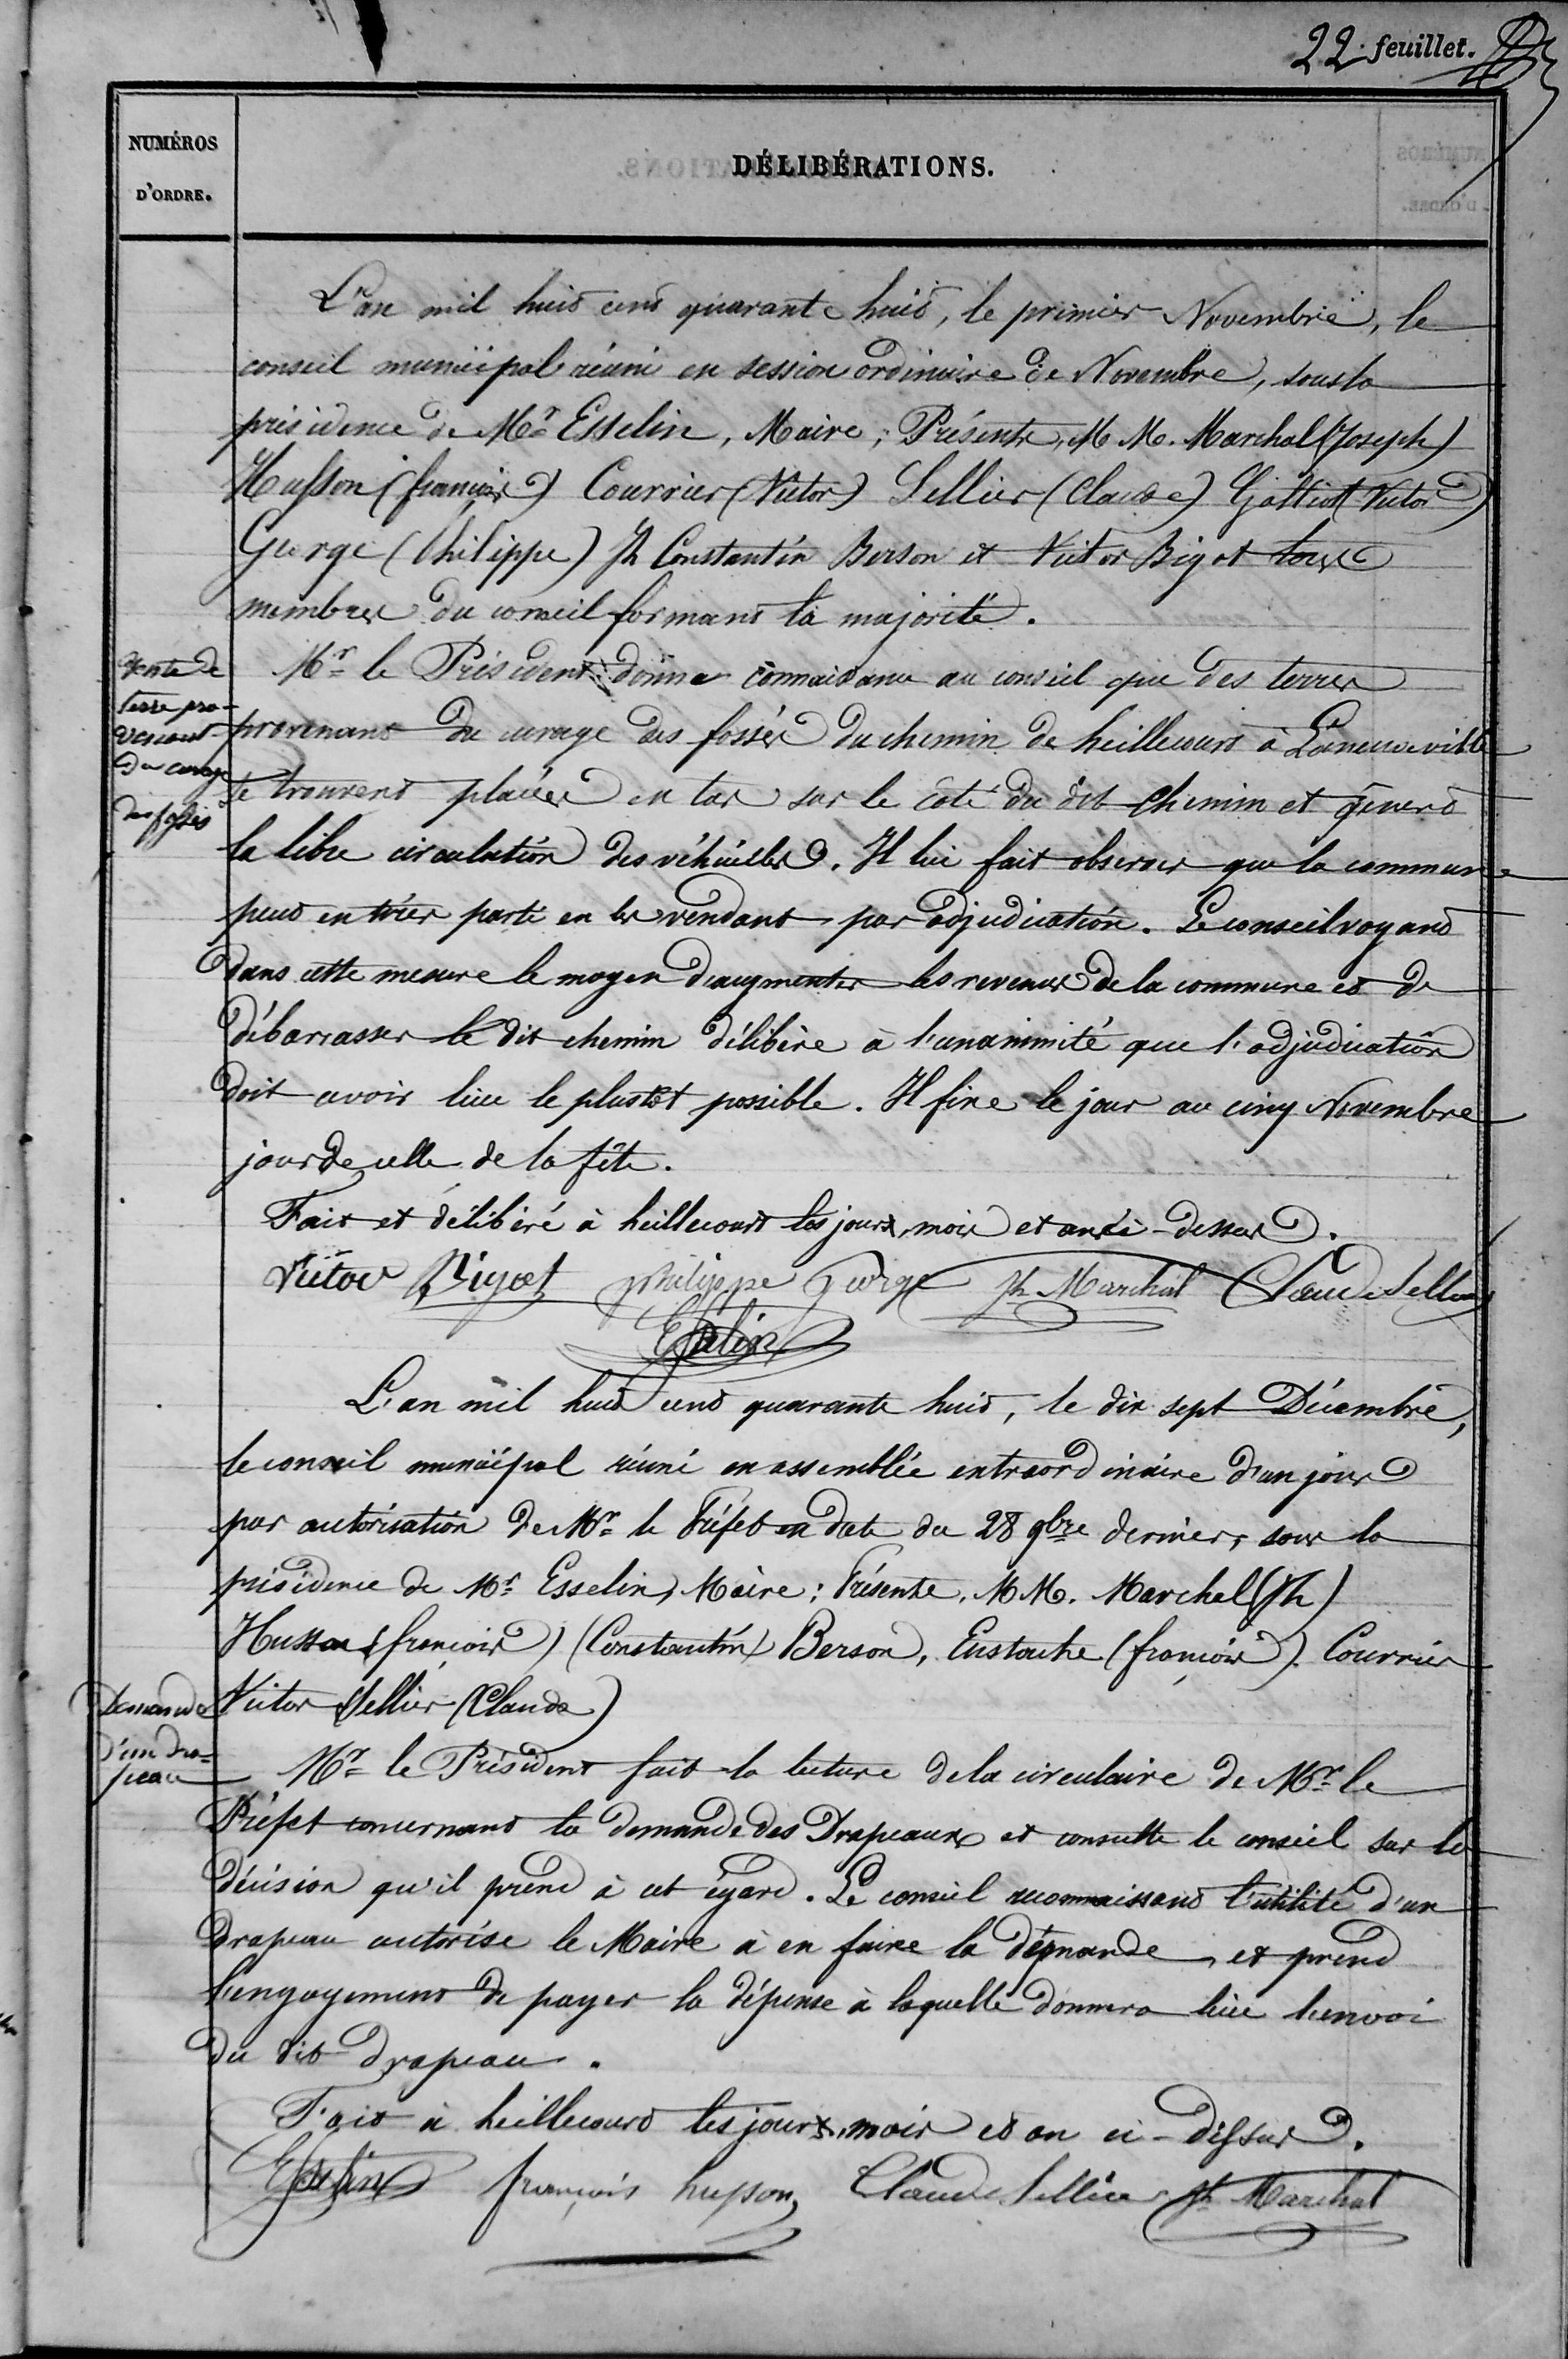 22 feuillet.
NUMÉROS
D'ORDRE.
DÉLIBÉRATIONS.
L'an mil huit cent quarante huit, le premier Novembre, le
conseil municipal réuni en session ordinaire de Novembre, sous la
présidence de Mr Esselin, Maire; Présents, M M. Marchal (Joseph)
Husson (françois) Courrier (Victor) Sellier (Claude) Galliot (Victor)
George (Philippe) Jh Constantin Berson et Victor Bigot tous
membres du conseil formant la majorité.
Vente de
terre pro-
venant
du curage
des fossés
Mr le Président donne connaissance au conseil que des terres
provenant du curage des fossés du chemin de heillecourt à Laneuveville
se trouvent placées en tas sur le côté du dit chemin et gênent
la libre circulation des véhicules. Il lui fait observer que la commune
peut en tirer parti en les vendant par adjudication. Le conseil voyant
dans cette mesure le moyen d'augmenter les revenus de la commune et de
débarrasser le dit chemin délibère à l'unanimité que l'adjudication
doit avoir lieu le plustôt possible. Il fixe le jour au cinq Novembre
jour de celle de la fête.
Fait et délibéré à heillecourt les jour, mois et an ci-dessus.
Victor Bigot philippe george Jh Marchal Claude Sellier
Esselin
L'an mil huit cent quarante huit, le dix sept Décembre,
le conseil municipal réuni en assemblée extraordinaire d'un jour
par autorisation de Mr le Préfet en date du 28 9bre dernier, sous la
présidence de Mr Esselin, Maire: Présents, M M. Marchal (Jh)
Husson (françois) (Constantin) Berson, Eustache (françois). Courrier
Victor Sellier (Claude)
Demande
d'un dra=
peau
Mr le Président fait la lecture de la circulaire de Mr le
Préfet concernant la demande des Drapeaux et consulte le conseil sur la
décision qu'il prend à cet égard. Le conseil reconnaissant l'utilité d'un
drapeau autorise le Maire à en faire la demande, et prend
l'engagement de payer la dépense à laquelle donnera lieu l'envoi
du dit drapeau.
Fait à heillecourt les jour, mois et an ci-dessus.
Esselin françois husson Claude Sellier Jh Marchal